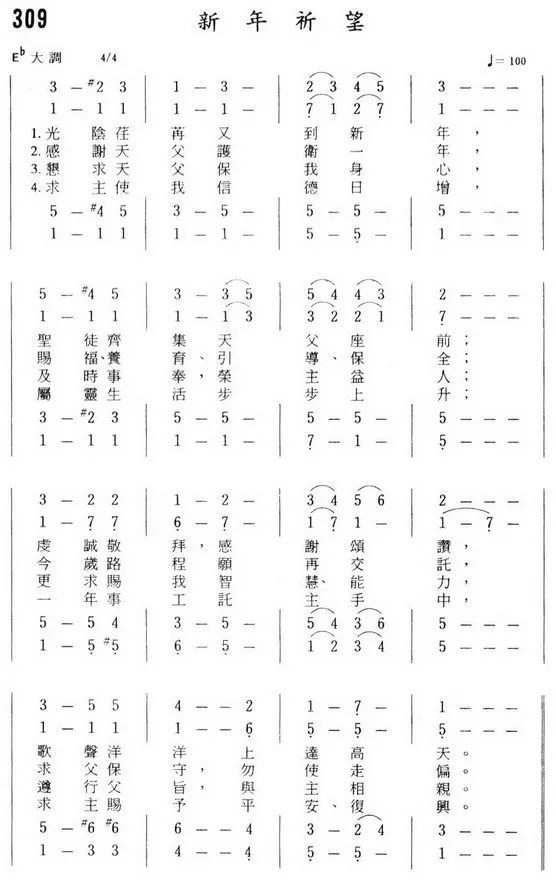 309 新年祈望
E♭大調 4/4 ♩= 100
3 – #2 3 | 1 – 3 – | 2 3 4 5 | 3 – – –
1 – 1 1 | 1 – 1 – | 7̣ 1 2 7̣ | 1 – – –
1. 光陰荏苒又到新年，
2. 感謝天父護衛一年，
3. 懇求天父保我身心，
4. 求主使我信德日增，
5 – #4 5 | 3 – 5 – | 5 – 5 – | 5 – – –
1 – 1 1 | 1 – 1 – | 5 – 5̣ – | 1 – – –
5 – #4 5 | 3 – 3 5 | 5 4 4 3 | 2 – – –
1 – 1 1 | 1 – 1 3 | 3 2 2 1 | 7̣ – – –
聖徒齊集天父座前；
賜福、養育、引導、保全；
及時事奉，榮主益人；
屬靈生活步步上升；
3 – #2 3 | 5 – 5 – | 5 – 5 – | 5 – – –
1 – 1 1 | 1 – 1 – | 7̣ – 1 – | 5̣ – – –
3 – 2 2 | 1 – 2 – | 3 4 5 6 | 2 – – –
1 – 7̣ 7̣ | 6̣ – 7̣ – | 1 7̣ 1 – | 1 – 7̣ –
虔誠敬拜，感謝頌讚，
今歲路程願再交託，
更求賜我智慧、能力，
一年事工託主手中，
5 – 5 4 | 3 – 5 – | 5 4 3 6 | 5 – – –
1 – 5̣ #5̣ | 6̣ – 5̣ – | 1 2 3 4 | 5 – – –
3 – 5 5 | 4 – – 2 | 1 – 7̣ – | 1 – – –
1 – 1 1 | 1 – – 6̣ | 5̣ – 5̣ – | 5̣ – – –
歌聲洋洋上達高天。
求父保守，勿使走偏。
遵行父旨，與主相親。
求主賜予平安、復興。
5 – #6 #6 | 6 – – 4 | 3 – 2 4 | 3 – – –
1 – 3 3 | 4 – – 4̣ | 5̣ – 5̣ – | 1 – – –